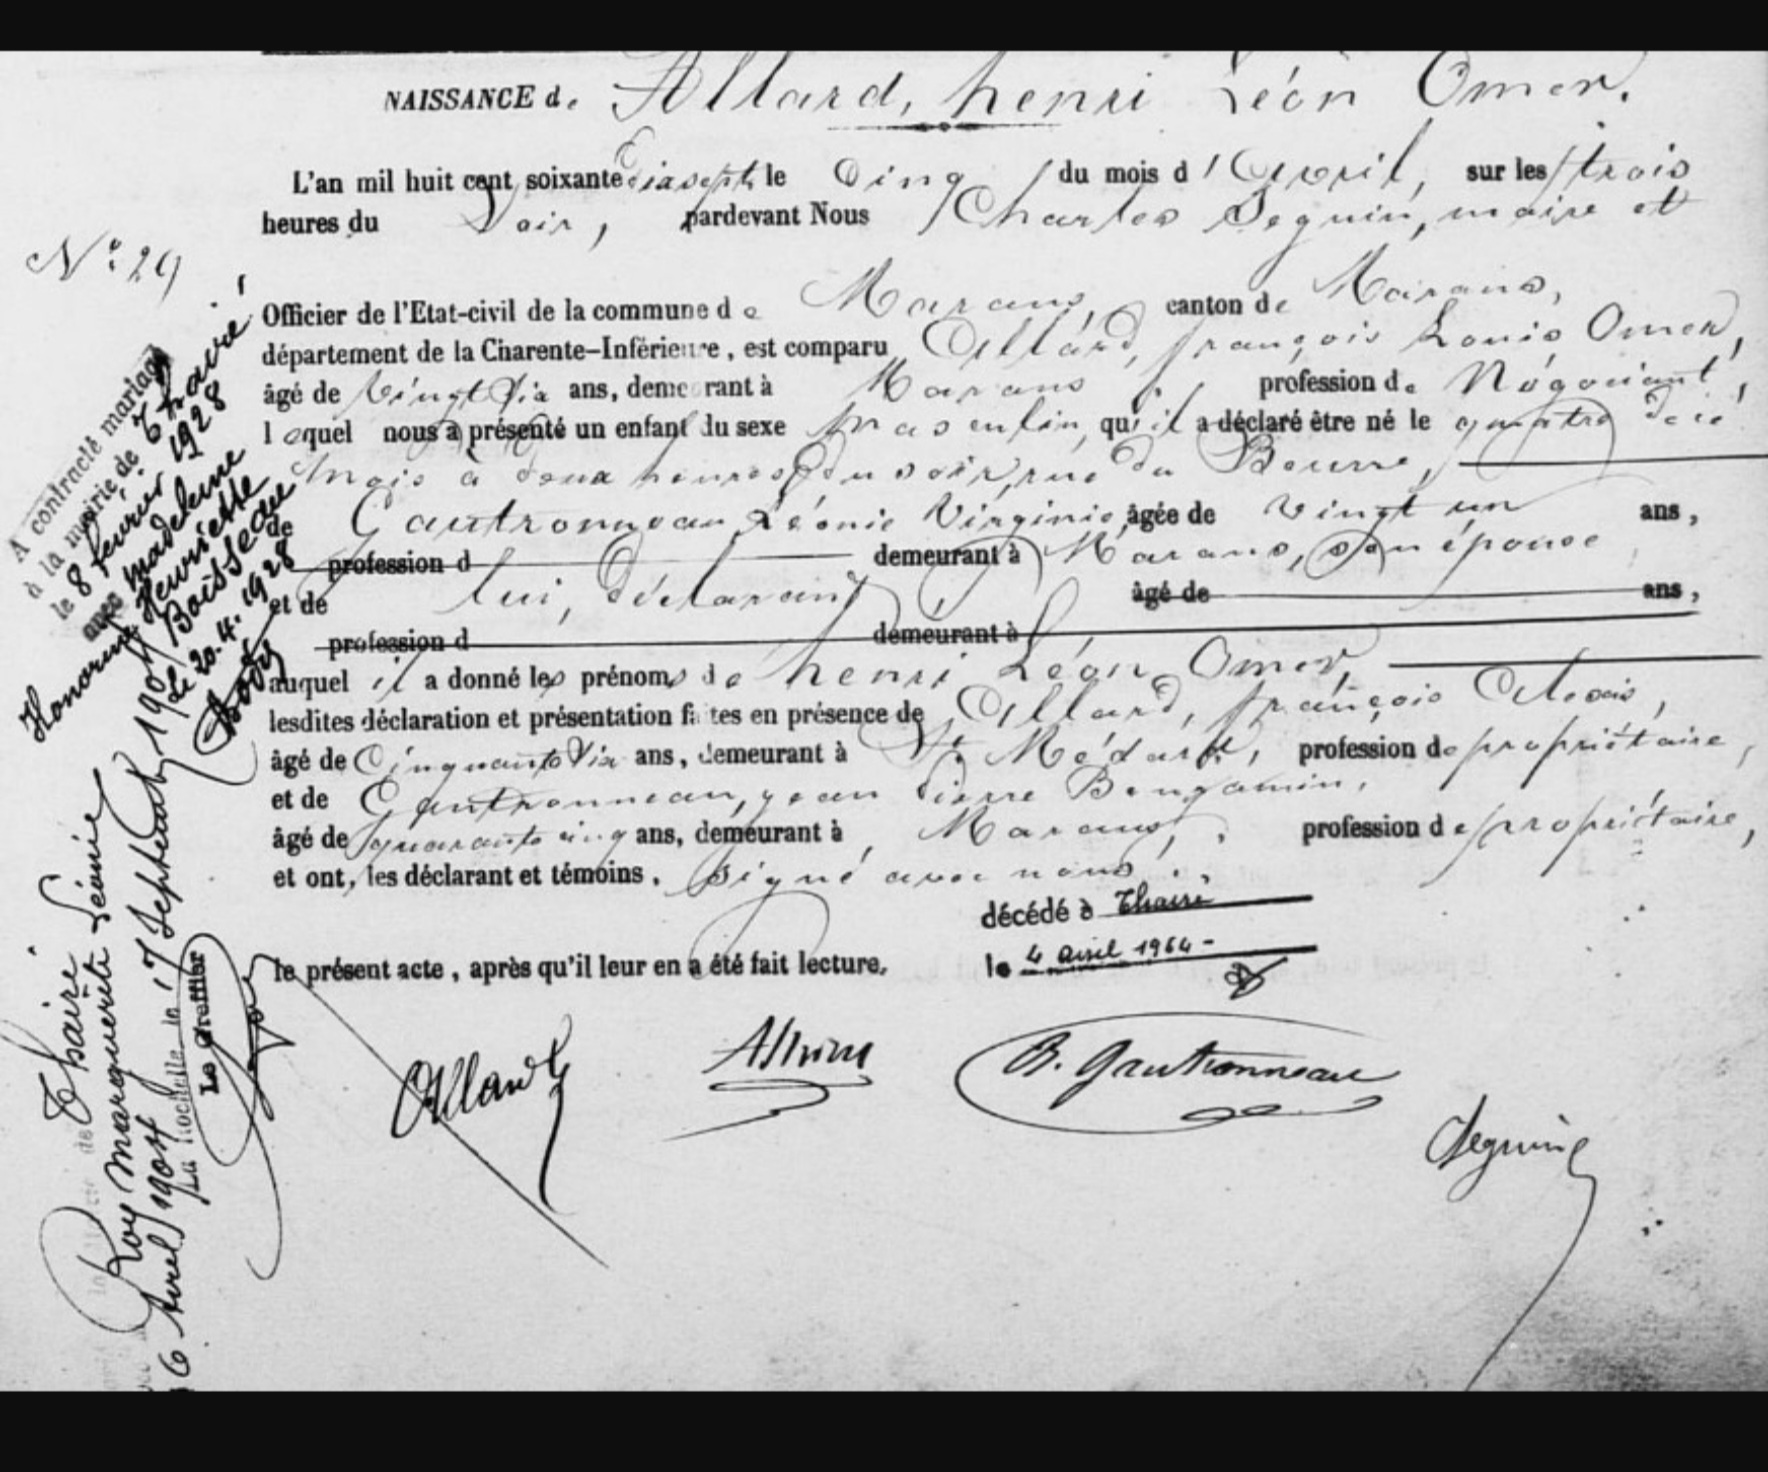 NAISSANCE de Allard, henri Léon Omer.
L'an mil huit cent soixante dix sept, le Cinq du mois d'Avril, sur les trois
heures du Soir, pardevant Nous Charles Seguin, maire et
N° 29
Officier de l'Etat-civil de la commune de Marans, canton de Marans,
département de la Charente-Inférieure, est comparu Allard, françois Louis Omer,
âgé de Vingt Six ans, demeurant à Marans, profession de Négociant,
lequel nous a présenté un enfant du sexe Masculin, qu'il a déclaré être né le quatre de ce
mois à deux heures du soir, rue du Beurre,
de Gautronneau Léonie Virginie, âgée de vingt un ans,
profession d demeurant à Marans, son épouse
et de lui, déclarant, âgé de ans,
profession d demeurant à
auquel il a donné les prénoms de henri Léon Omer,
lesdites déclaration et présentation faites en présence de Allard, françois
âgé de Cinquante Six ans, demeurant à St Médard, profession de propriétaire,
et de Gautronneau, jean Pierre Benjamin,
âgé de quarante cinq ans, demeurant à Marans, profession de propriétaire,
et ont, les déclarant et témoins, signé avec nous
le présent acte, après qu'il leur en a été fait lecture.
décédé à Thairé
le 4 avril 1964 -
Allard
B. Gautronneau
Seguin
A contracté mariage
à la mairie de Thairé
le 8 février 1928
avec Madeleine
Honorine Henriette
Boisseau
Le 20.4.1928
Thairé
Roy Marguerite Léonie
6 Avril 1904
La Rochelle le 17 Septembre 1904
Le Greffier